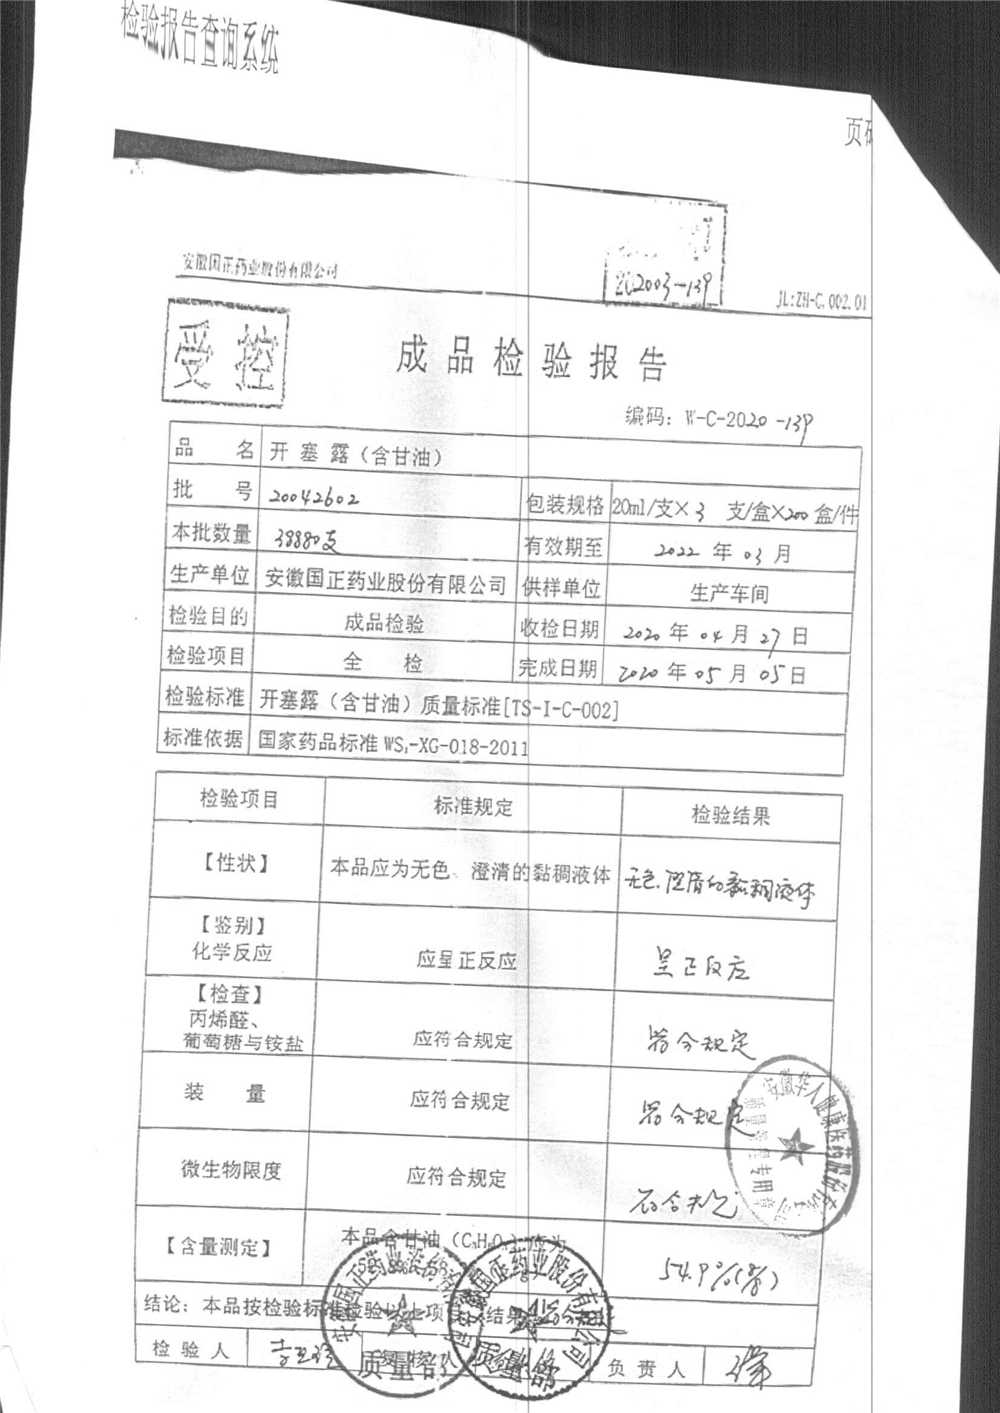 检验报告查询系统
页码
安徽国正药业股份有限公司
2003-139
JL:ZH-C.002.01
受控
成品检验报告
编码：W-C-2020-139
品名 开塞露（含甘油）
批号 20042602 包装规格 20ml/支×3 支/盒×200盒/件
本批数量 38880支 有效期至 2022年03月
生产单位 安徽国正药业股份有限公司 供样单位 生产车间
检验目的 成品检验 收检日期 2020年04月27日
检验项目 全检 完成日期 2020年05月05日
检验标准 开塞露（含甘油）质量标准[TS-I-C-002]
标准依据 国家药品标准WS₁-XG-018-2011
检验项目 标准规定 检验结果
【性状】 本品应为无色、澄清的黏稠液体 无色、澄清的黏稠液体
【鉴别】
化学反应 应呈正反应 呈正反应
【检查】
丙烯醛、
葡萄糖与铵盐 应符合规定 符合规定
装量 应符合规定 符合规定
微生物限度 应符合规定 符合规定
【含量测定】 本品含甘油（C₃H₈O₃）应为
54.9%(g/g)
结论：本品按检验标准检验以上项目 结果
检验人 负责人
安徽国正药业股份有限公司
质量部
安徽国正药业股份有限公司
质量部
安徽华人健康医药股份有限公司
专用章